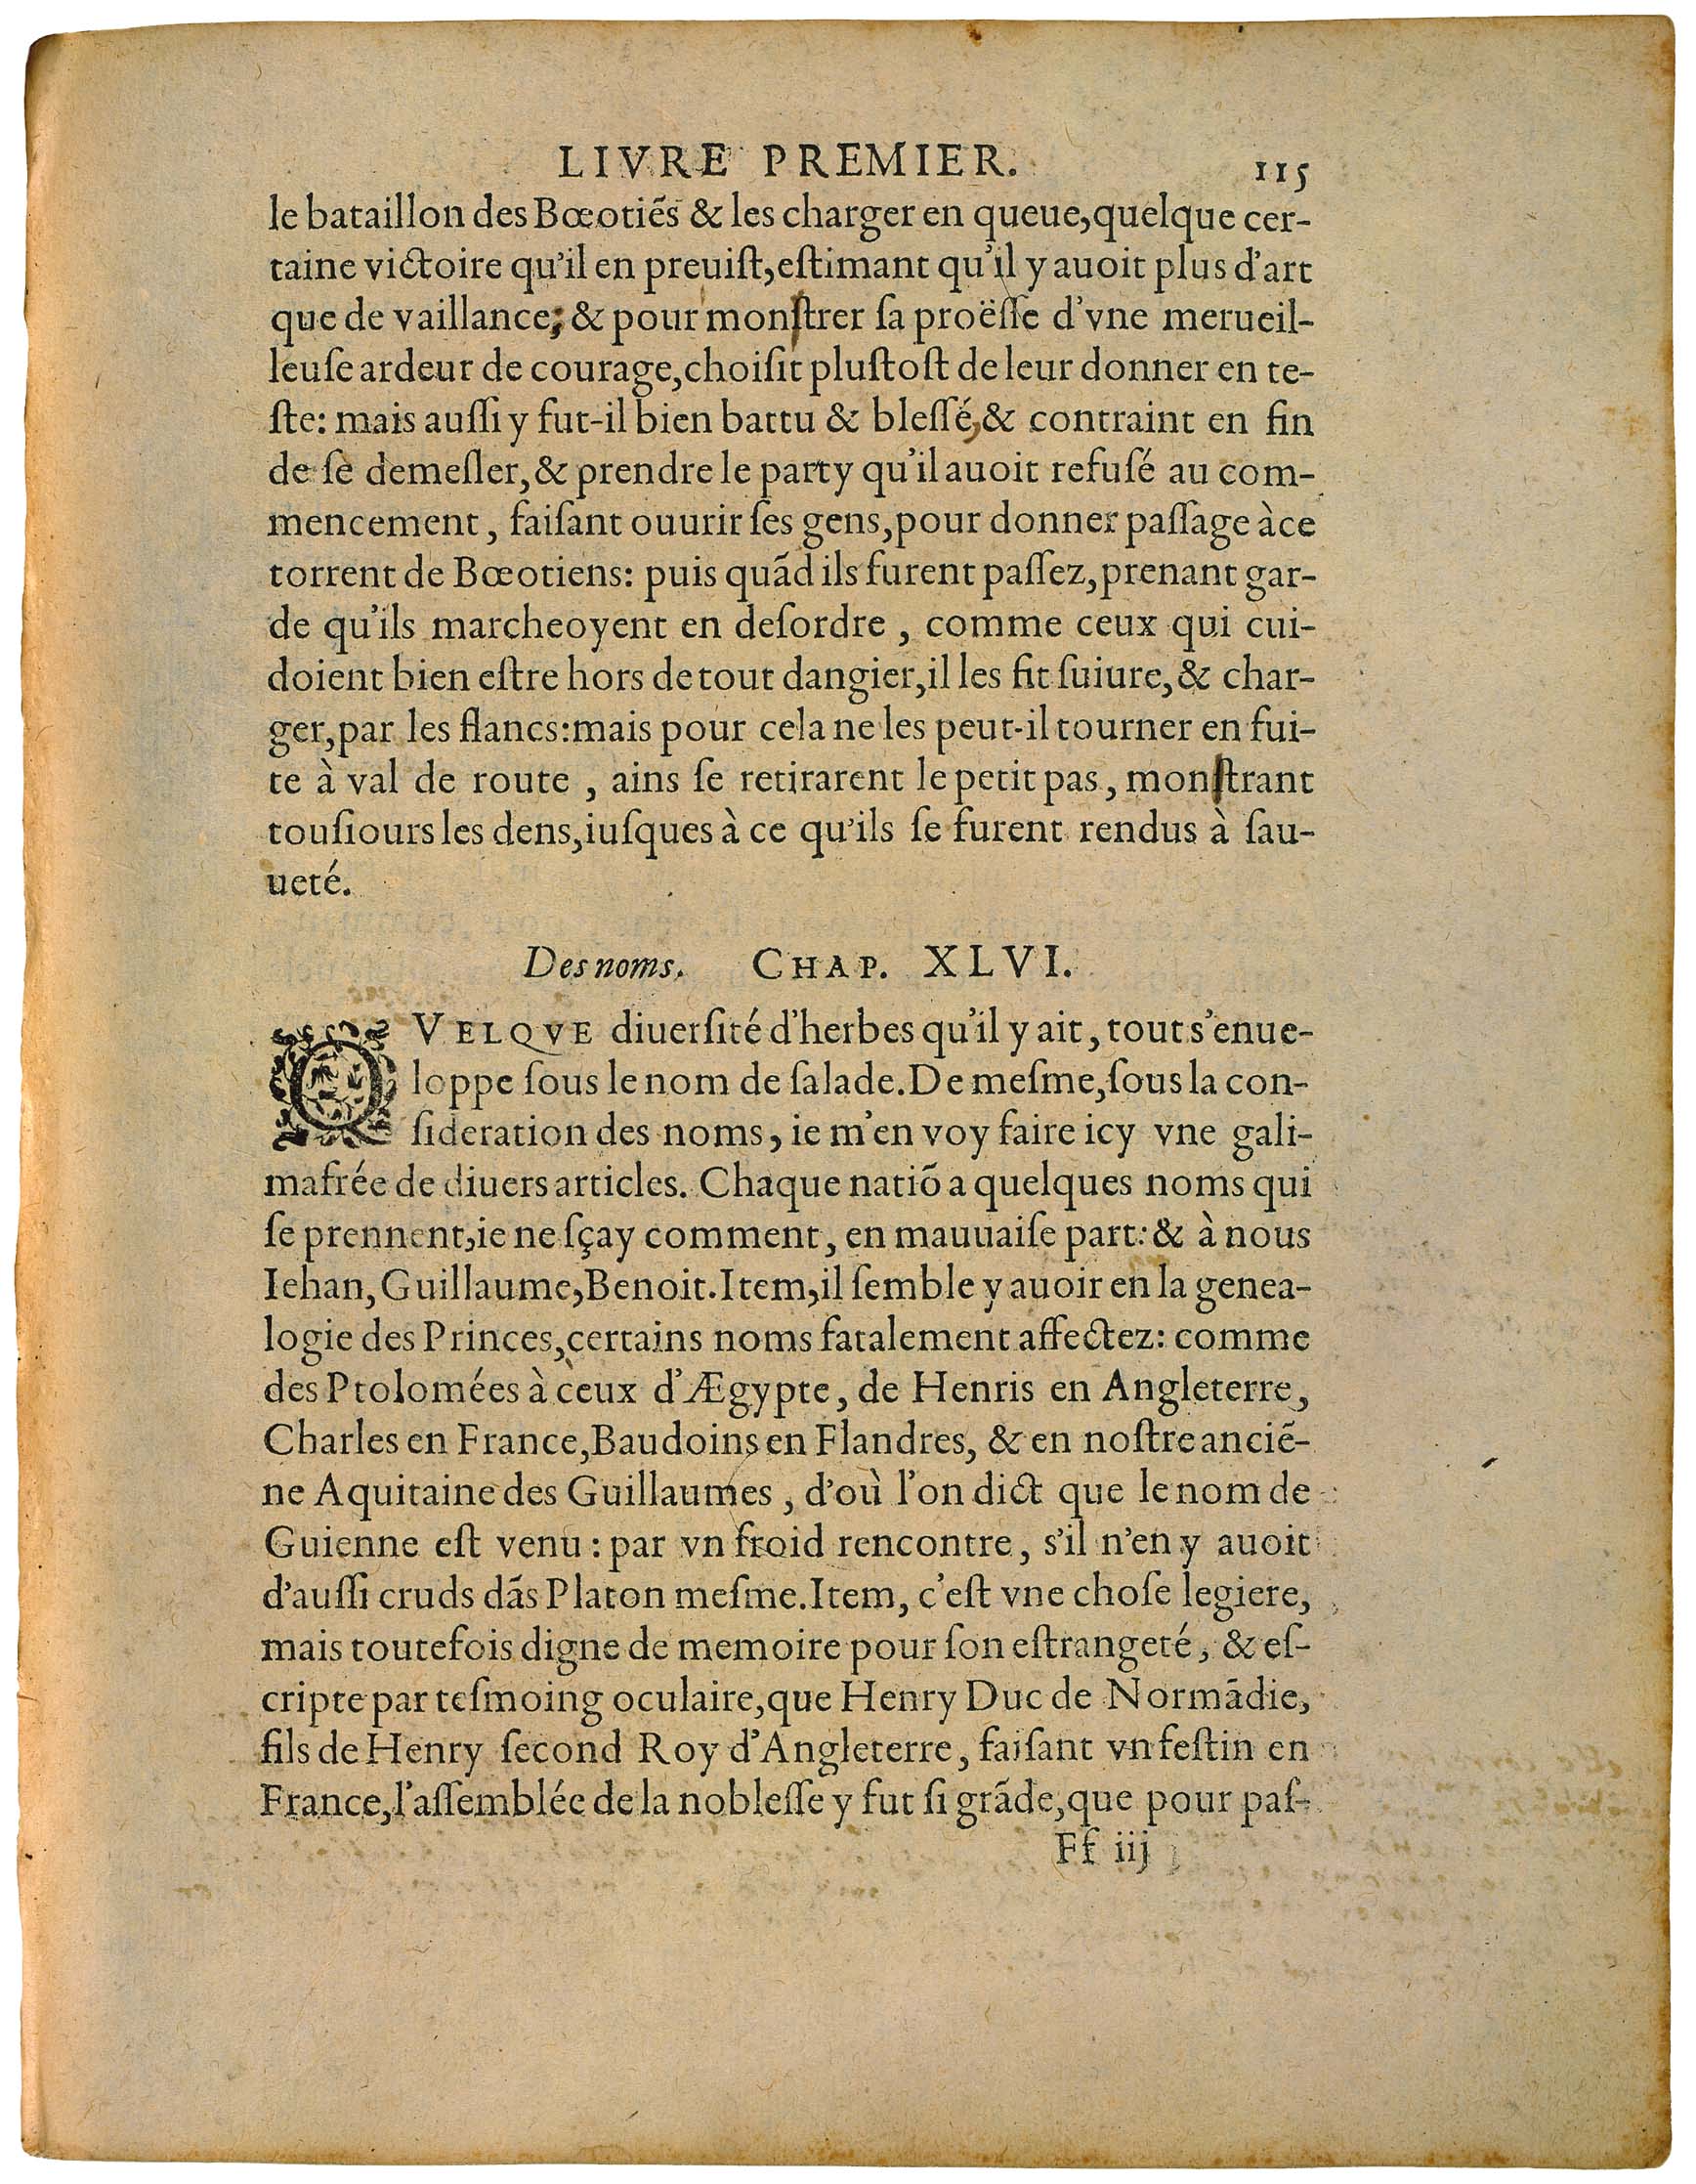 LIVRE PREMIER. 115
le bataillon des Bœotiẽs & les charger en queue, quelque cer-
taine victoire qu'il en preuiſt, eſtimant qu'il y auoit plus d'art
que de vaillance; & pour monſtrer ſa proëſſe d'vne merueil-
leuſe ardeur de courage, choiſit pluſtoſt de leur donner en te-
ſte: mais auſſi y fut-il bien battu & bleſſé, & contraint en fin
de ſe demeſler, & prendre le party qu'il auoit refuſé au com-
mencement, faiſant ouurir ſes gens, pour donner paſſage à ce
torrent de Bœotiens: puis quãd ils furent paſſez, prenant gar-
de qu'ils marcheoyent en deſordre, comme ceux qui cui-
doient bien eſtre hors de tout dangier, il les fit ſuiure, & char-
ger, par les flancs: mais pour cela ne les peut-il tourner en fui-
te à val de route, ains ſe retirarent le petit pas, monſtrant
touſiours les dens, iuſques à ce qu'ils ſe furent rendus à ſau-
ueté.
Des noms. CHAP. XLVI.
QVELQVE diuerſité d'herbes qu'il y ait, tout s'enue-
loppe ſous le nom de ſalade. De meſme, ſous la con-
ſideration des noms, ie m'en voy faire icy vne gali-
mafrée de diuers articles. Chaque natiõ a quelques noms qui
ſe prennent, ie ne ſçay comment, en mauuaiſe part: & à nous
Iehan, Guillaume, Benoit. Item, il ſemble y auoir en la genea-
logie des Princes, certains noms fatalement affectez: comme
des Ptolomées à ceux d'Ægypte, de Henris en Angleterre,
Charles en France, Baudoins en Flandres, & en noſtre anciẽ-
ne Aquitaine des Guillaumes, d'où l'on dict que le nom de
Guienne eſt venu: par vn froid rencontre, s'il n'en y auoit
d'auſſi cruds dãs Platon meſme. Item, c'eſt vne choſe legiere,
mais toutefois digne de memoire pour ſon eſtrangeté, & eſ-
cripte par teſmoing oculaire, que Henry Duc de Normãdie,
fils de Henry ſecond Roy d'Angleterre, faiſant vn feſtin en
France, l'aſſemblée de la nobleſſe y fut ſi grãde, que pour paſ-
Ff iij